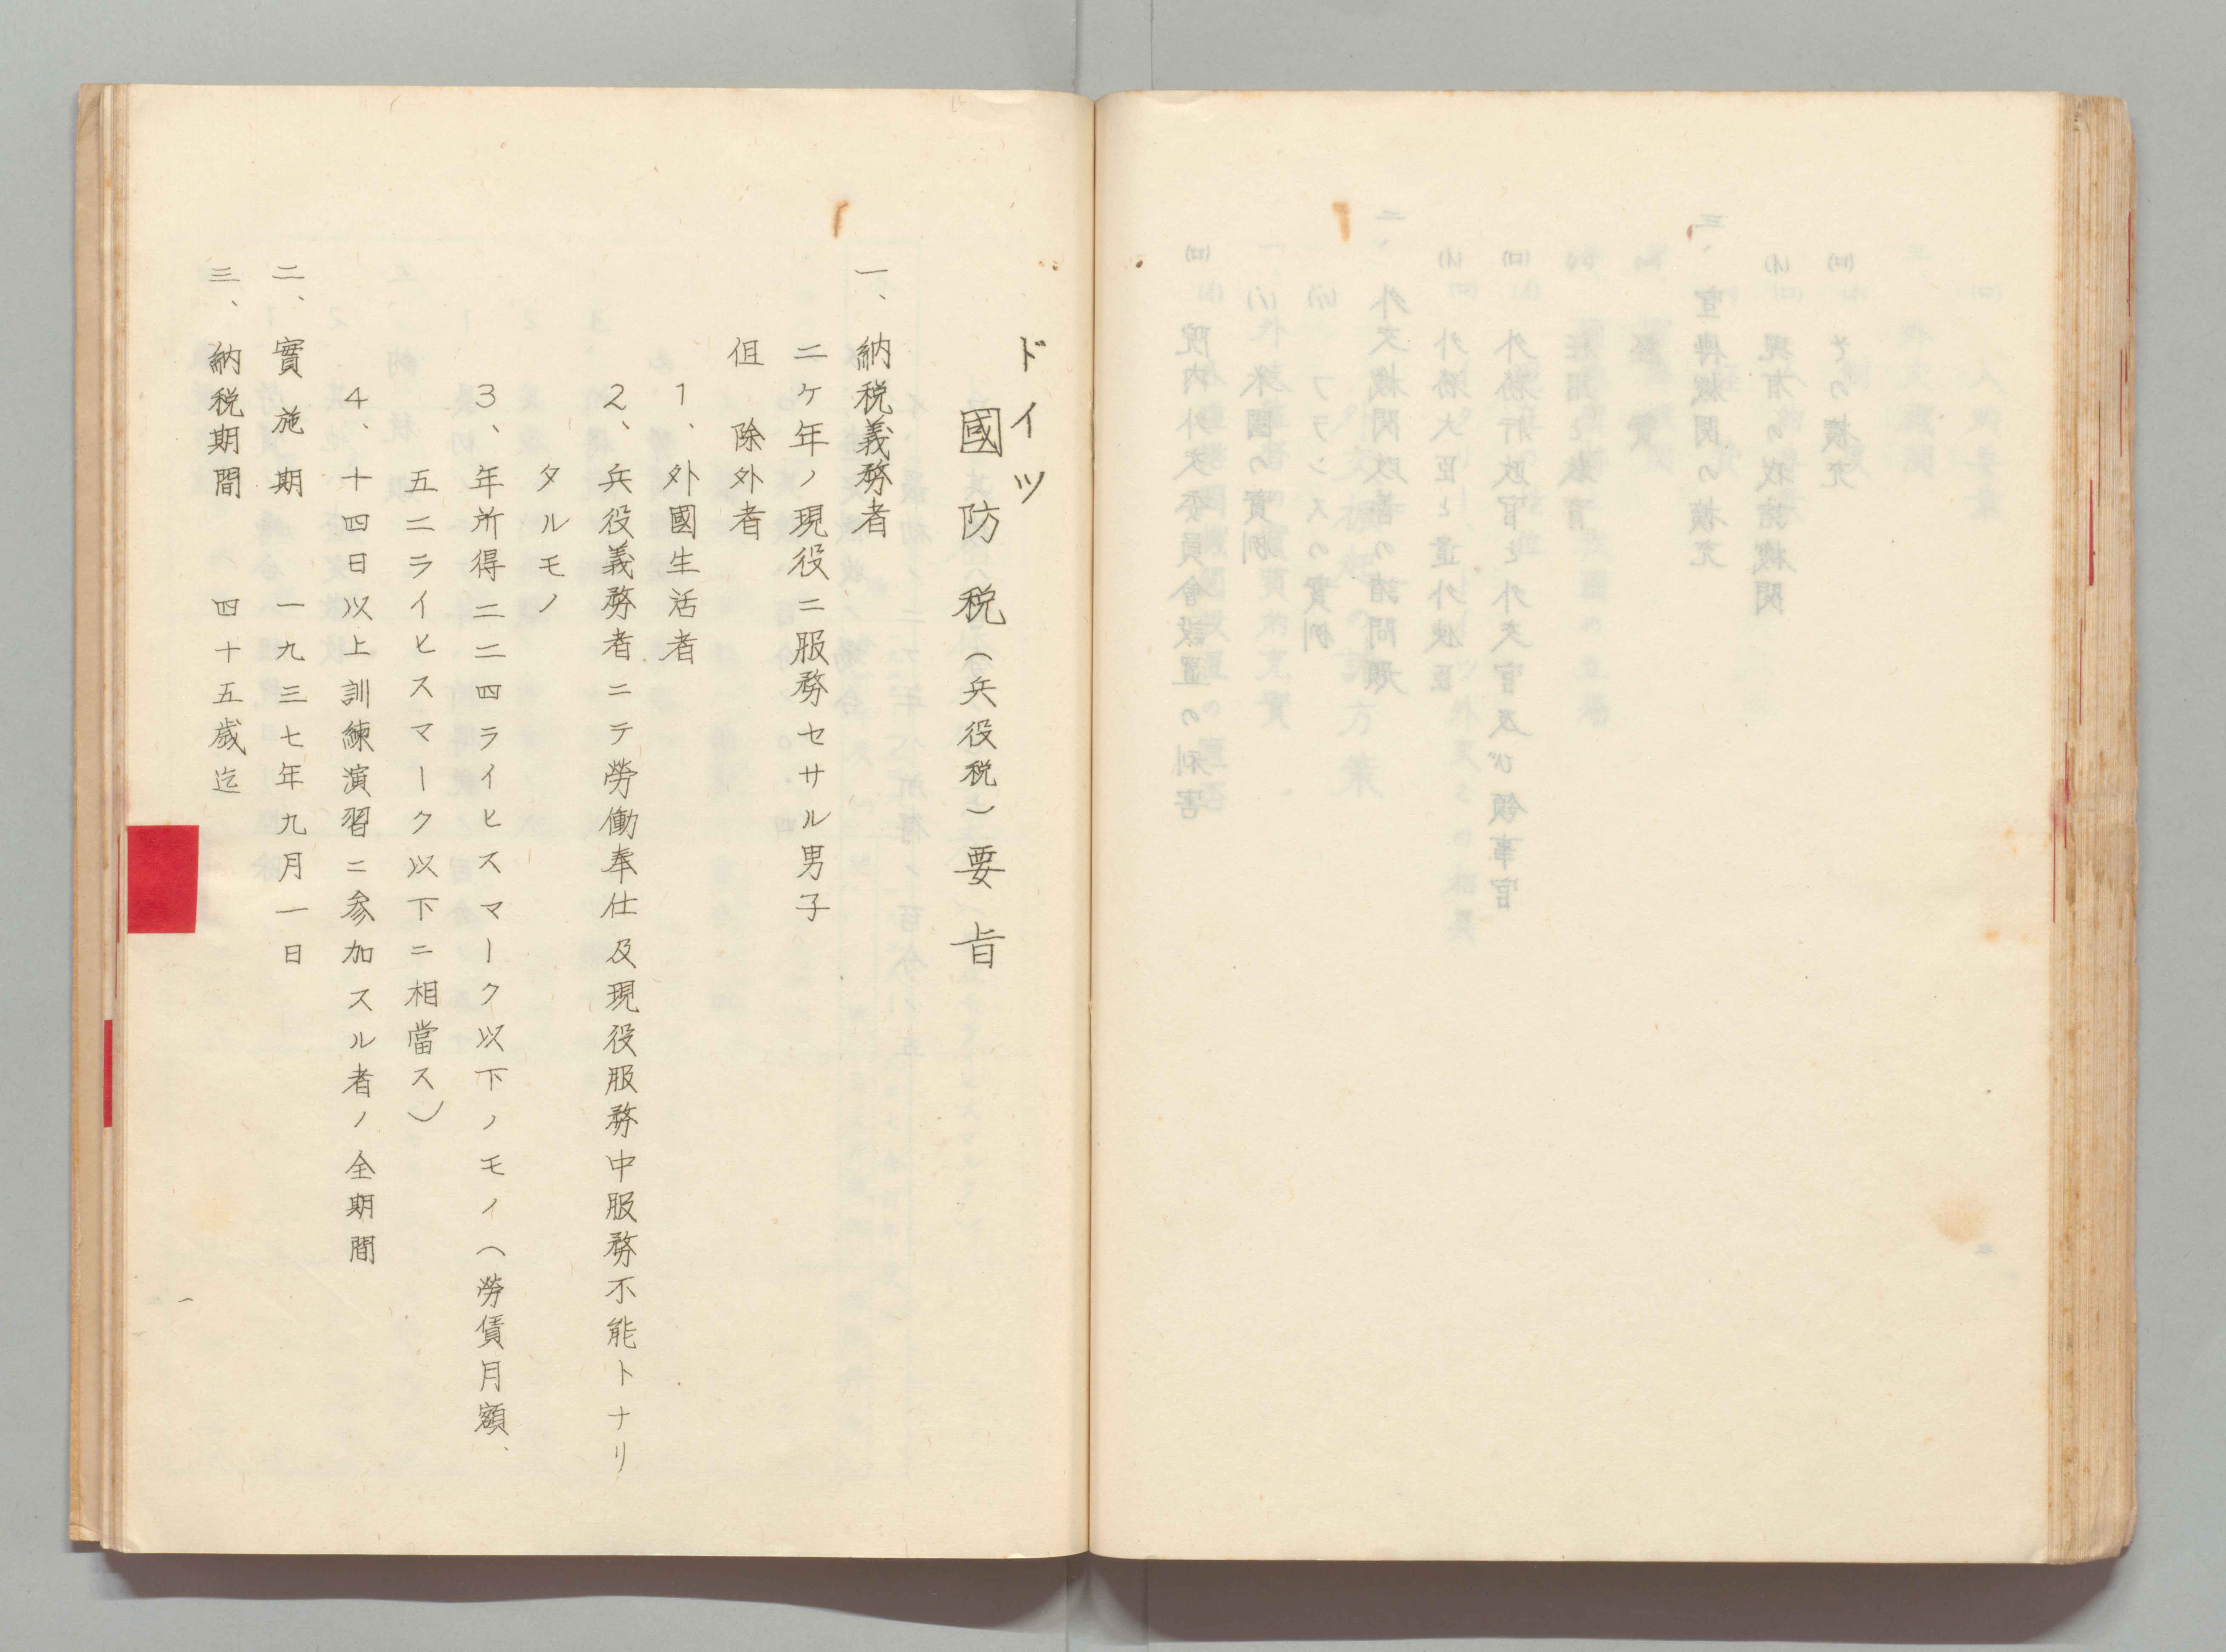 ドイツ
國防税（兵役税）要旨
一、納税義務者
二ケ年ノ現役ニ服務セサル男子
但　除外者
1、外國生活者
2、兵役義務者ニテ勞働奉仕及現役服務中服務不能トナリ
タルモノ
3、年所得二二四ライヒスマーク以下ノモノ（勞賃月額、
五二ライヒスマーク以下ニ相當ス）
4、十四日以上訓練演習ニ参加スル者ノ全期間
二、實施期　一九三七年九月一日
三、納税期間　四十五歳迄
一